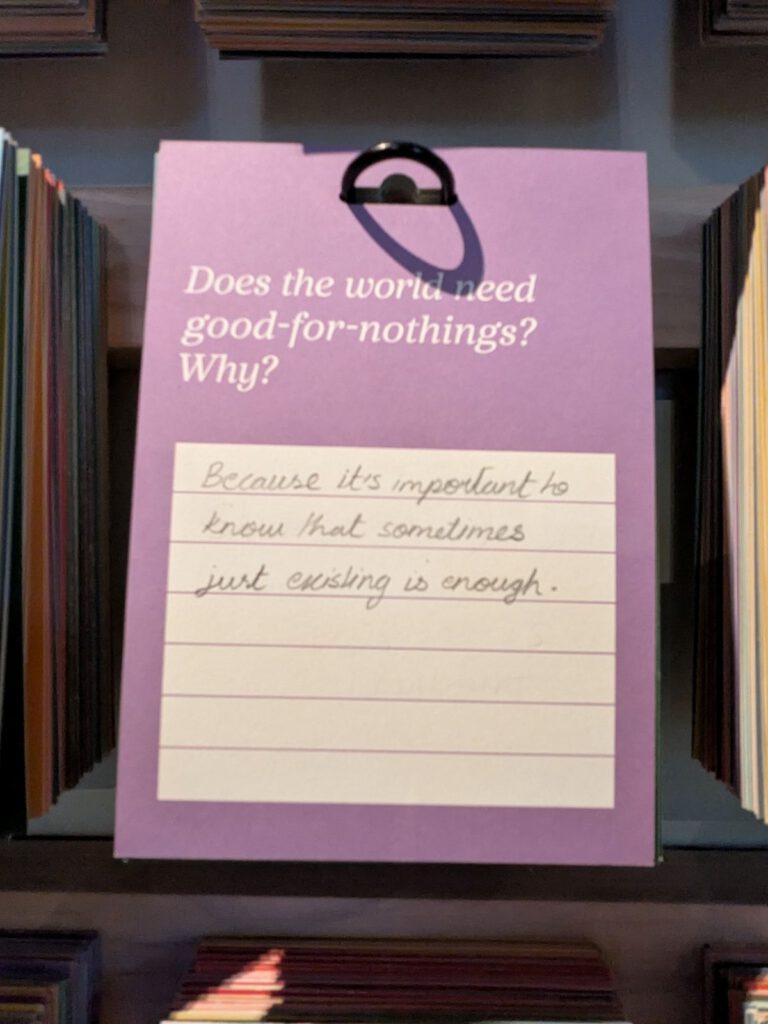 Does the world need
good-for-nothings?
Why?
Because it's important to
know that sometimes
just existing is enough.